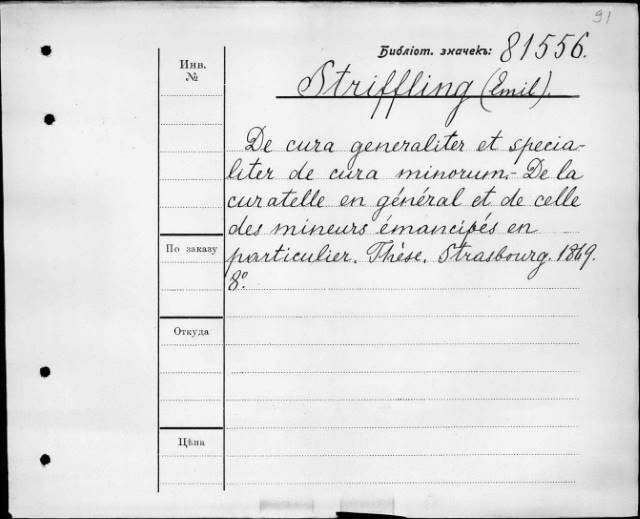 91
Библіот. значекъ: 81556.
Инв.
№
Striffling (Emil).
De cura generaliter et specia-
liter de cura minorum. - De la
curatelle en général et de celle
des mineurs émancipés en
particulier. Thèse. Strasbourg. 1869.
8º
По заказу
Откуда
Цѣна